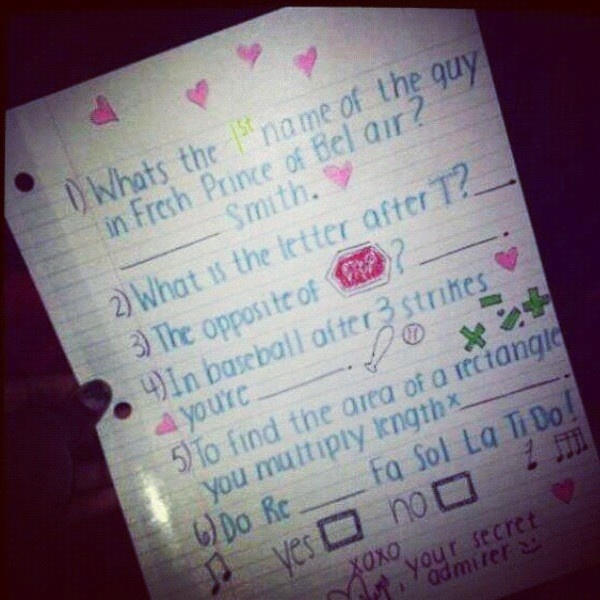 1) Whats the 1st name of the guy
in Fresh Prince of Bel air?
________ Smith.
2) What is the letter after T? ____.
3) The opposite of STOP? ________.
4) In baseball after 3 strikes
you're ________.
5) To find the area of a rectangle
you multiply length x ________.
6) Do Re ____ Fa Sol La Ti Do!
yes no
xoxo
your secret
admirer